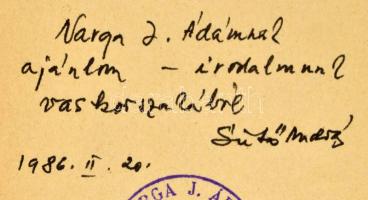 Varga J. Ádámnak
ajánlom – irodalmunk
vaskorszakából
Sütő András
1986. II. 20.
RGA J. Á